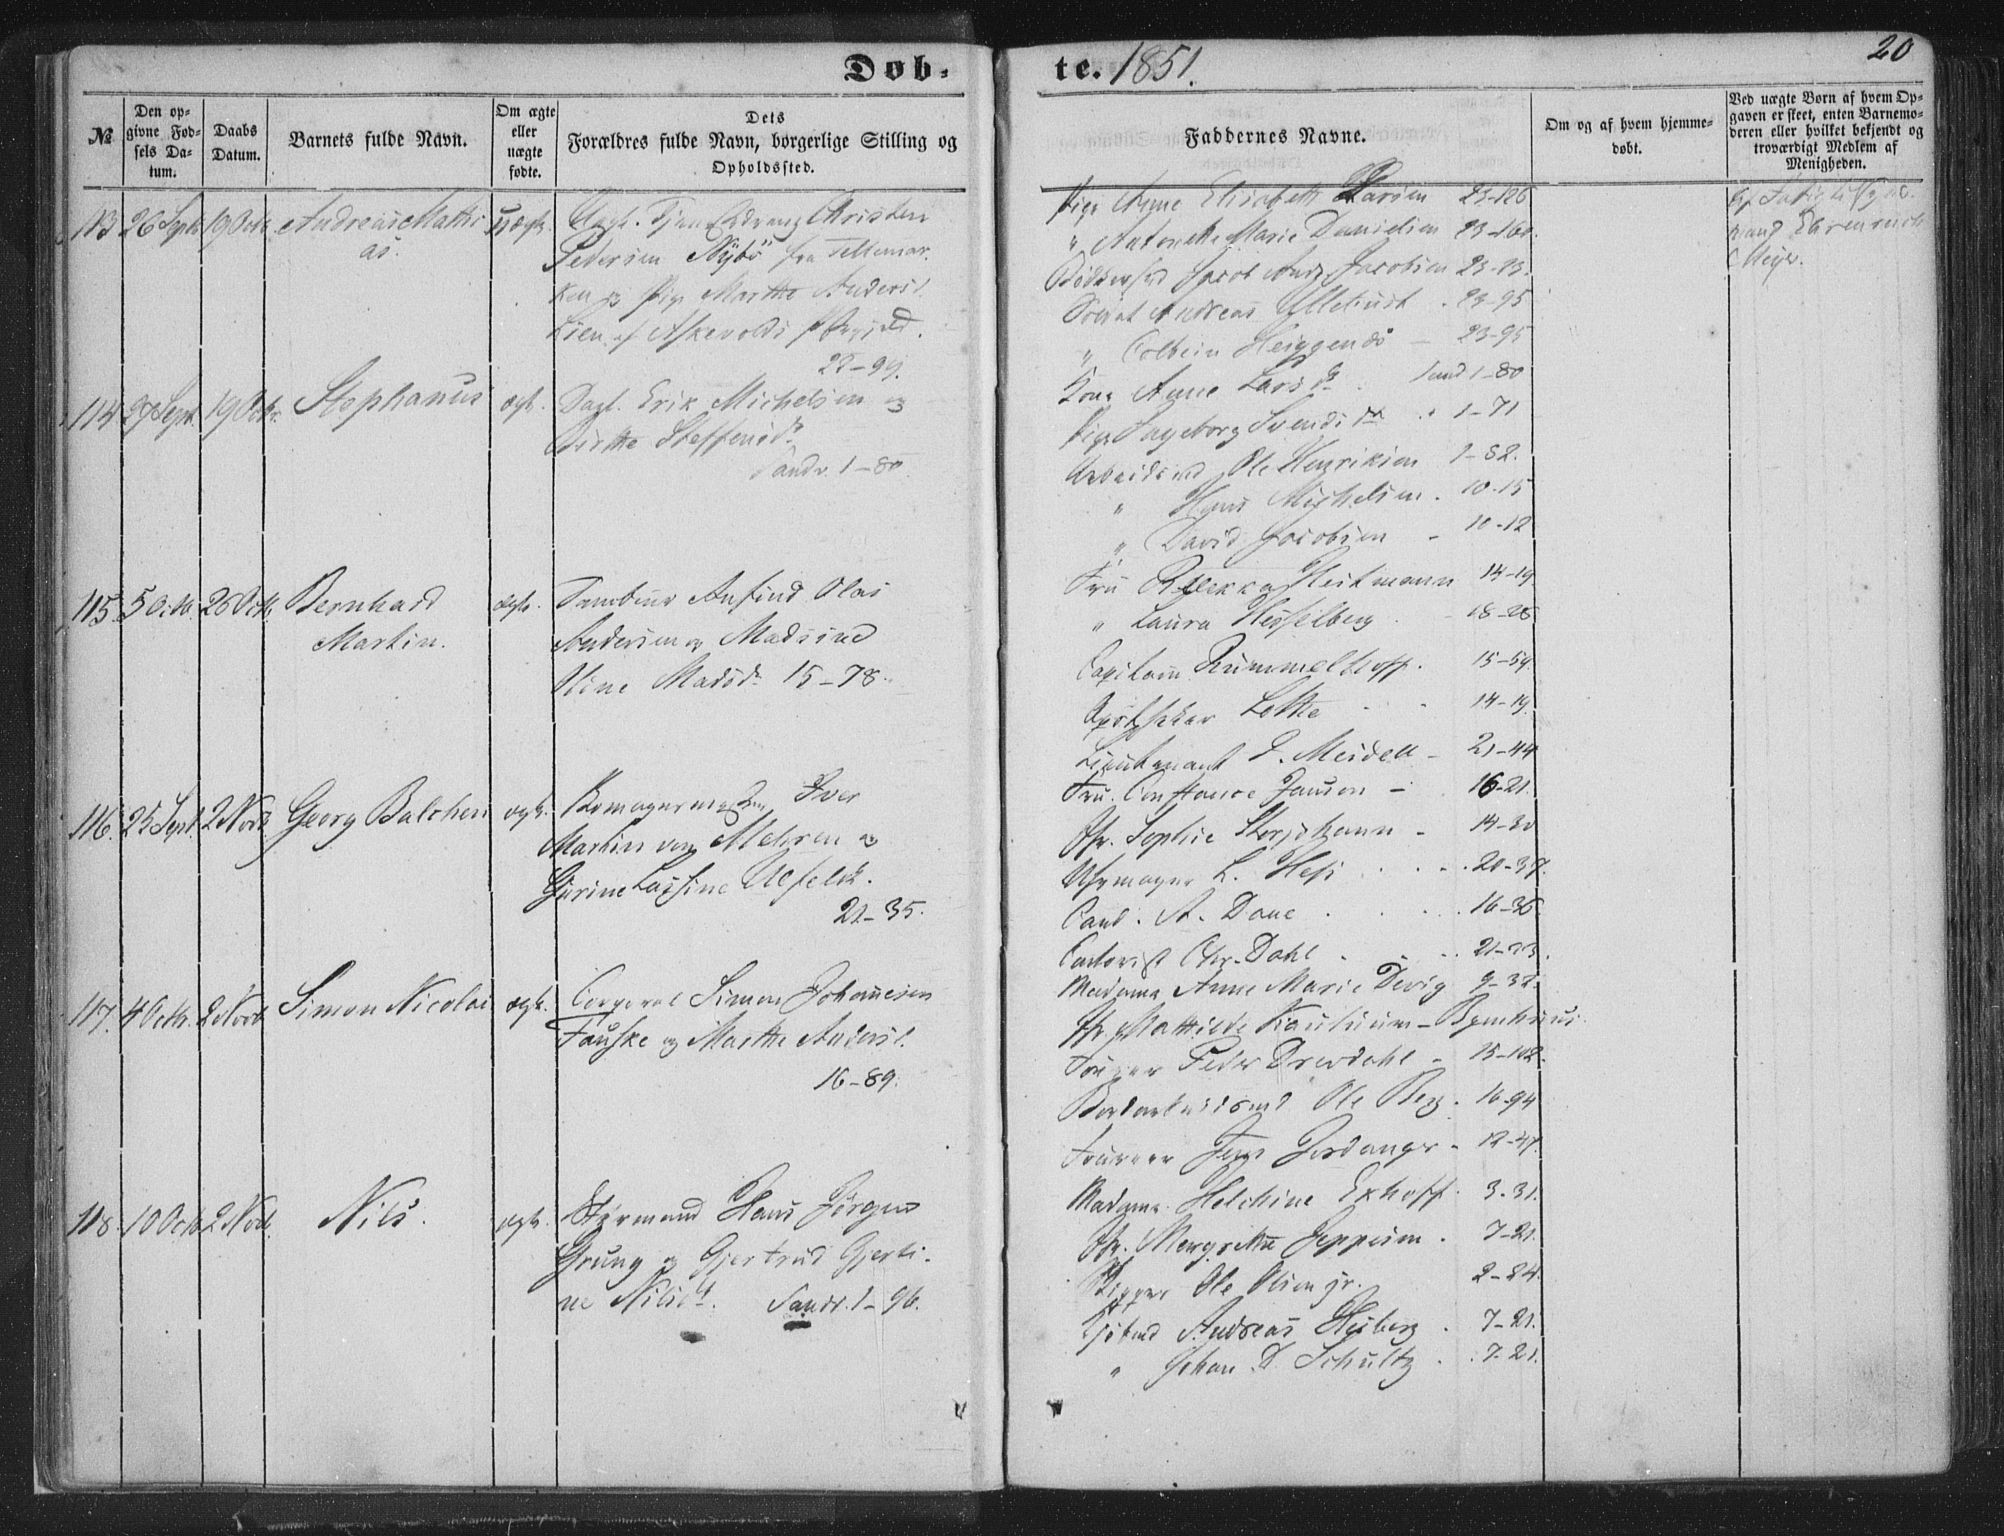 Døb-
te. 1851.
20
№
Den op-
givne Fød-
sels Da-
tum.
Daabs
Datum.
Barnets fulde Navn.
Om ægte
eller
uægte
fødte.
Dets
Forældres fulde Navn, borgerlige Stilling og
Opholdssted.
Faddernes Navne.
Om og af hvem hjemme-
døbt.
Ved uægte Børn af hvem Op-
gaven er skeet, enten Barnemo-
deren eller hvilket bekjendt og
troværdigt Medlem af
Menigheden.
113 26 Sept. 19 Octr. Andreas Mathi
as.
uægt. Christen
Pedersen Nybö fra Tellemar-
ken og Pige Marthe Andersd.
Lien af Askevolds
22-99.
Pige Anne Elisabeth Larsen 23-126
" Antonette Marie Danielsen 23-160.
Bødkersvd Jacob Andr. Jacobsen 23-23.
Soldat Andreas 23-95
" Colbein 23-95
Ehrenreich
Meyer.
114 27 Sept. 19 Octr. Stephanus ægt. Dagl. Erik Michelsen og
Birthe Steffensdr.
Sandv. 1-80.
Kone Anne Larsdr. Sand 1-80
Pige Ingeborg Svendsdr. 1-71
Arbeidsmd Ole Henriksen 1-82.
" Hans Michelsen. 10-15
" David Jacobsen 10-12
115. 5 Octr. 26 Octr. Bernhard
Martin.
ægt. Tambour Anfind Olai
Andersen og Madsine
Stine Madsdr. 15-78.
Fru Rebekka Heitmann 14-19
" Laura Hesselberg 18-28
Capitain Rummelhoff. 15-59.
Apotheker Lothe 14-19.
Lieutenant D. Meidell 21-44
116. 25 Sept. 2 Novb. Georg Balchen ægt. Iver
Martin von Mehren og
Gurine Lassine Ulfeldt.
21-35.
Fru. Constance Janson 16-21.
Jfr. Sophie Storjohann 14-30
Uhrmager L. Hess 20-37.
Cand. A. Dane 16-36.
Contorist Chr. Dahl 21-33.
117. 4 Octr. 2 Novb. Simon Nicolai ægt. Corporal Simon Johannesen
Fauske og Marthe Andersd.
16-89.
Madame Anne Marie Devig 9-32.
Jfr. Mathilde
Fourer Peder Drevdahl 15-102.
Ole Berg. 16-94
Fourer Jens Jordanger 12-47.
118. 10 Octb 2 Novb. Nils. ægt. Styrmand Hans Jørgen
Grung og Gjertrud Gjerti-
ne Nilsdt. Sandv. 1-96.
Madame Helchine Exhoff 3-31.
Jfr. Mergrethe Jeppesen. 7-21.
Skipper Ole Olsen jr. 2-24.
Andreas Heiberg 7-21.
" Johan D. Schultz 7-21.